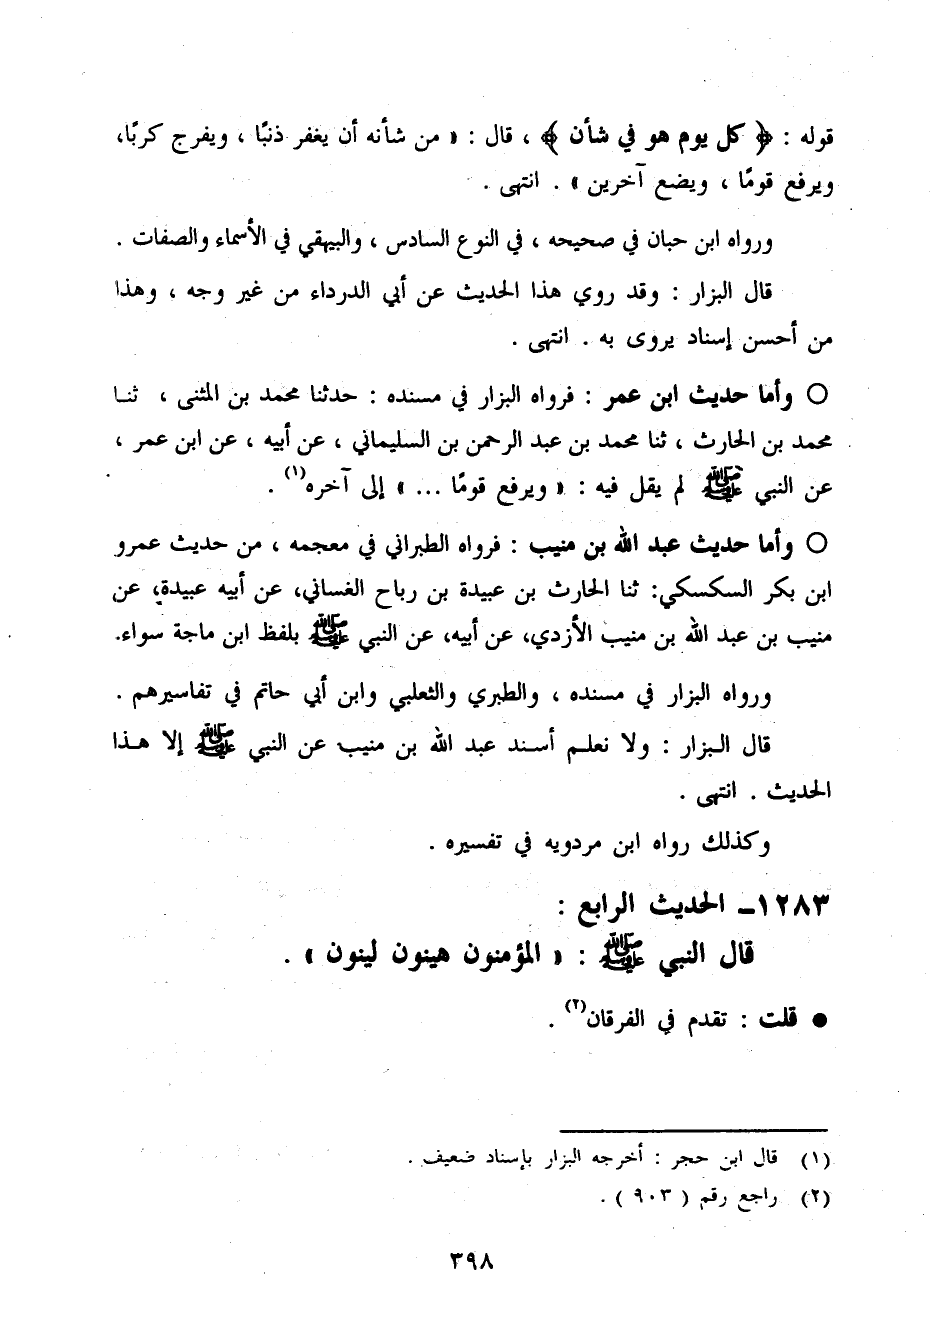 قوله : ﴿ كل يوم هو في شأن ﴾ ، قال : « من شأنه أن يغفر ذنبًا ، ويفرج كربًا،
ويرفع قومًا ، ويضع آخرين » . انتهى .
ورواه ابن حبان في صحيحه ، في النوع السادس ، والبيهقي في الأسماء والصفات .
قال البزار : وقد روي هذا الحديث عن أبي الدرداء من غير وجه ، وهذا
من أحسن إسناد يروى به . انتهى .
○ وأما حديث ابن عمر : فرواه البزار في مسنده : حدثنا محمد بن المثنى ، ثنا
محمد بن الحارث ، ثنا محمد بن عبد الرحمن بن السليماني ، عن أبيه ، عن ابن عمر ،
عن النبي ﷺ لم يقل فيه : « ويرفع قومًا ... » إلى آخره(١) .
○ وأما حديث عبد الله بن منيب : فرواه الطبراني في معجمه ، من حديث عمرو
ابن بكر السكسكي: ثنا الحارث بن عبيدة بن رباح الغساني، عن أبيه عبيدة، عن
منيب بن عبد الله بن منيب الأزدي، عن أبيه، عن النبي ﷺ بلفظ ابن ماجة سواء.
ورواه البزار في مسنده ، والطبري والثعلبي وابن أبي حاتم في تفاسيرهم .
قال البزار : ولا نعلم أسند عبد الله بن منيب عن النبي ﷺ إلا هذا
الحديث . انتهى .
وكذلك رواه ابن مردويه في تفسيره .
١٢٨٣ـ الحديث الرابع :
قال النبي ﷺ : « المؤمنون هينون لينون » .
● قلت : تقدم في الفرقان(٢) .
(١) قال ابن حجر : أخرجه البزار بإسناد ضعيف .
(٢) راجع رقم ( ٩٠٣ ) .
٣٩٨